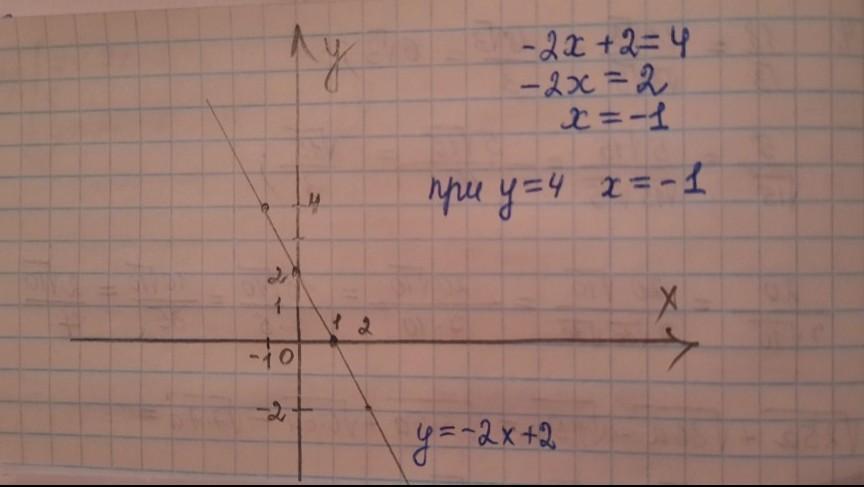 y
-2x+2=4
-2x=2
x=-1
при y=4 x=-1
4
2
1
X
1 2
-1 0
-2
y=-2x+2